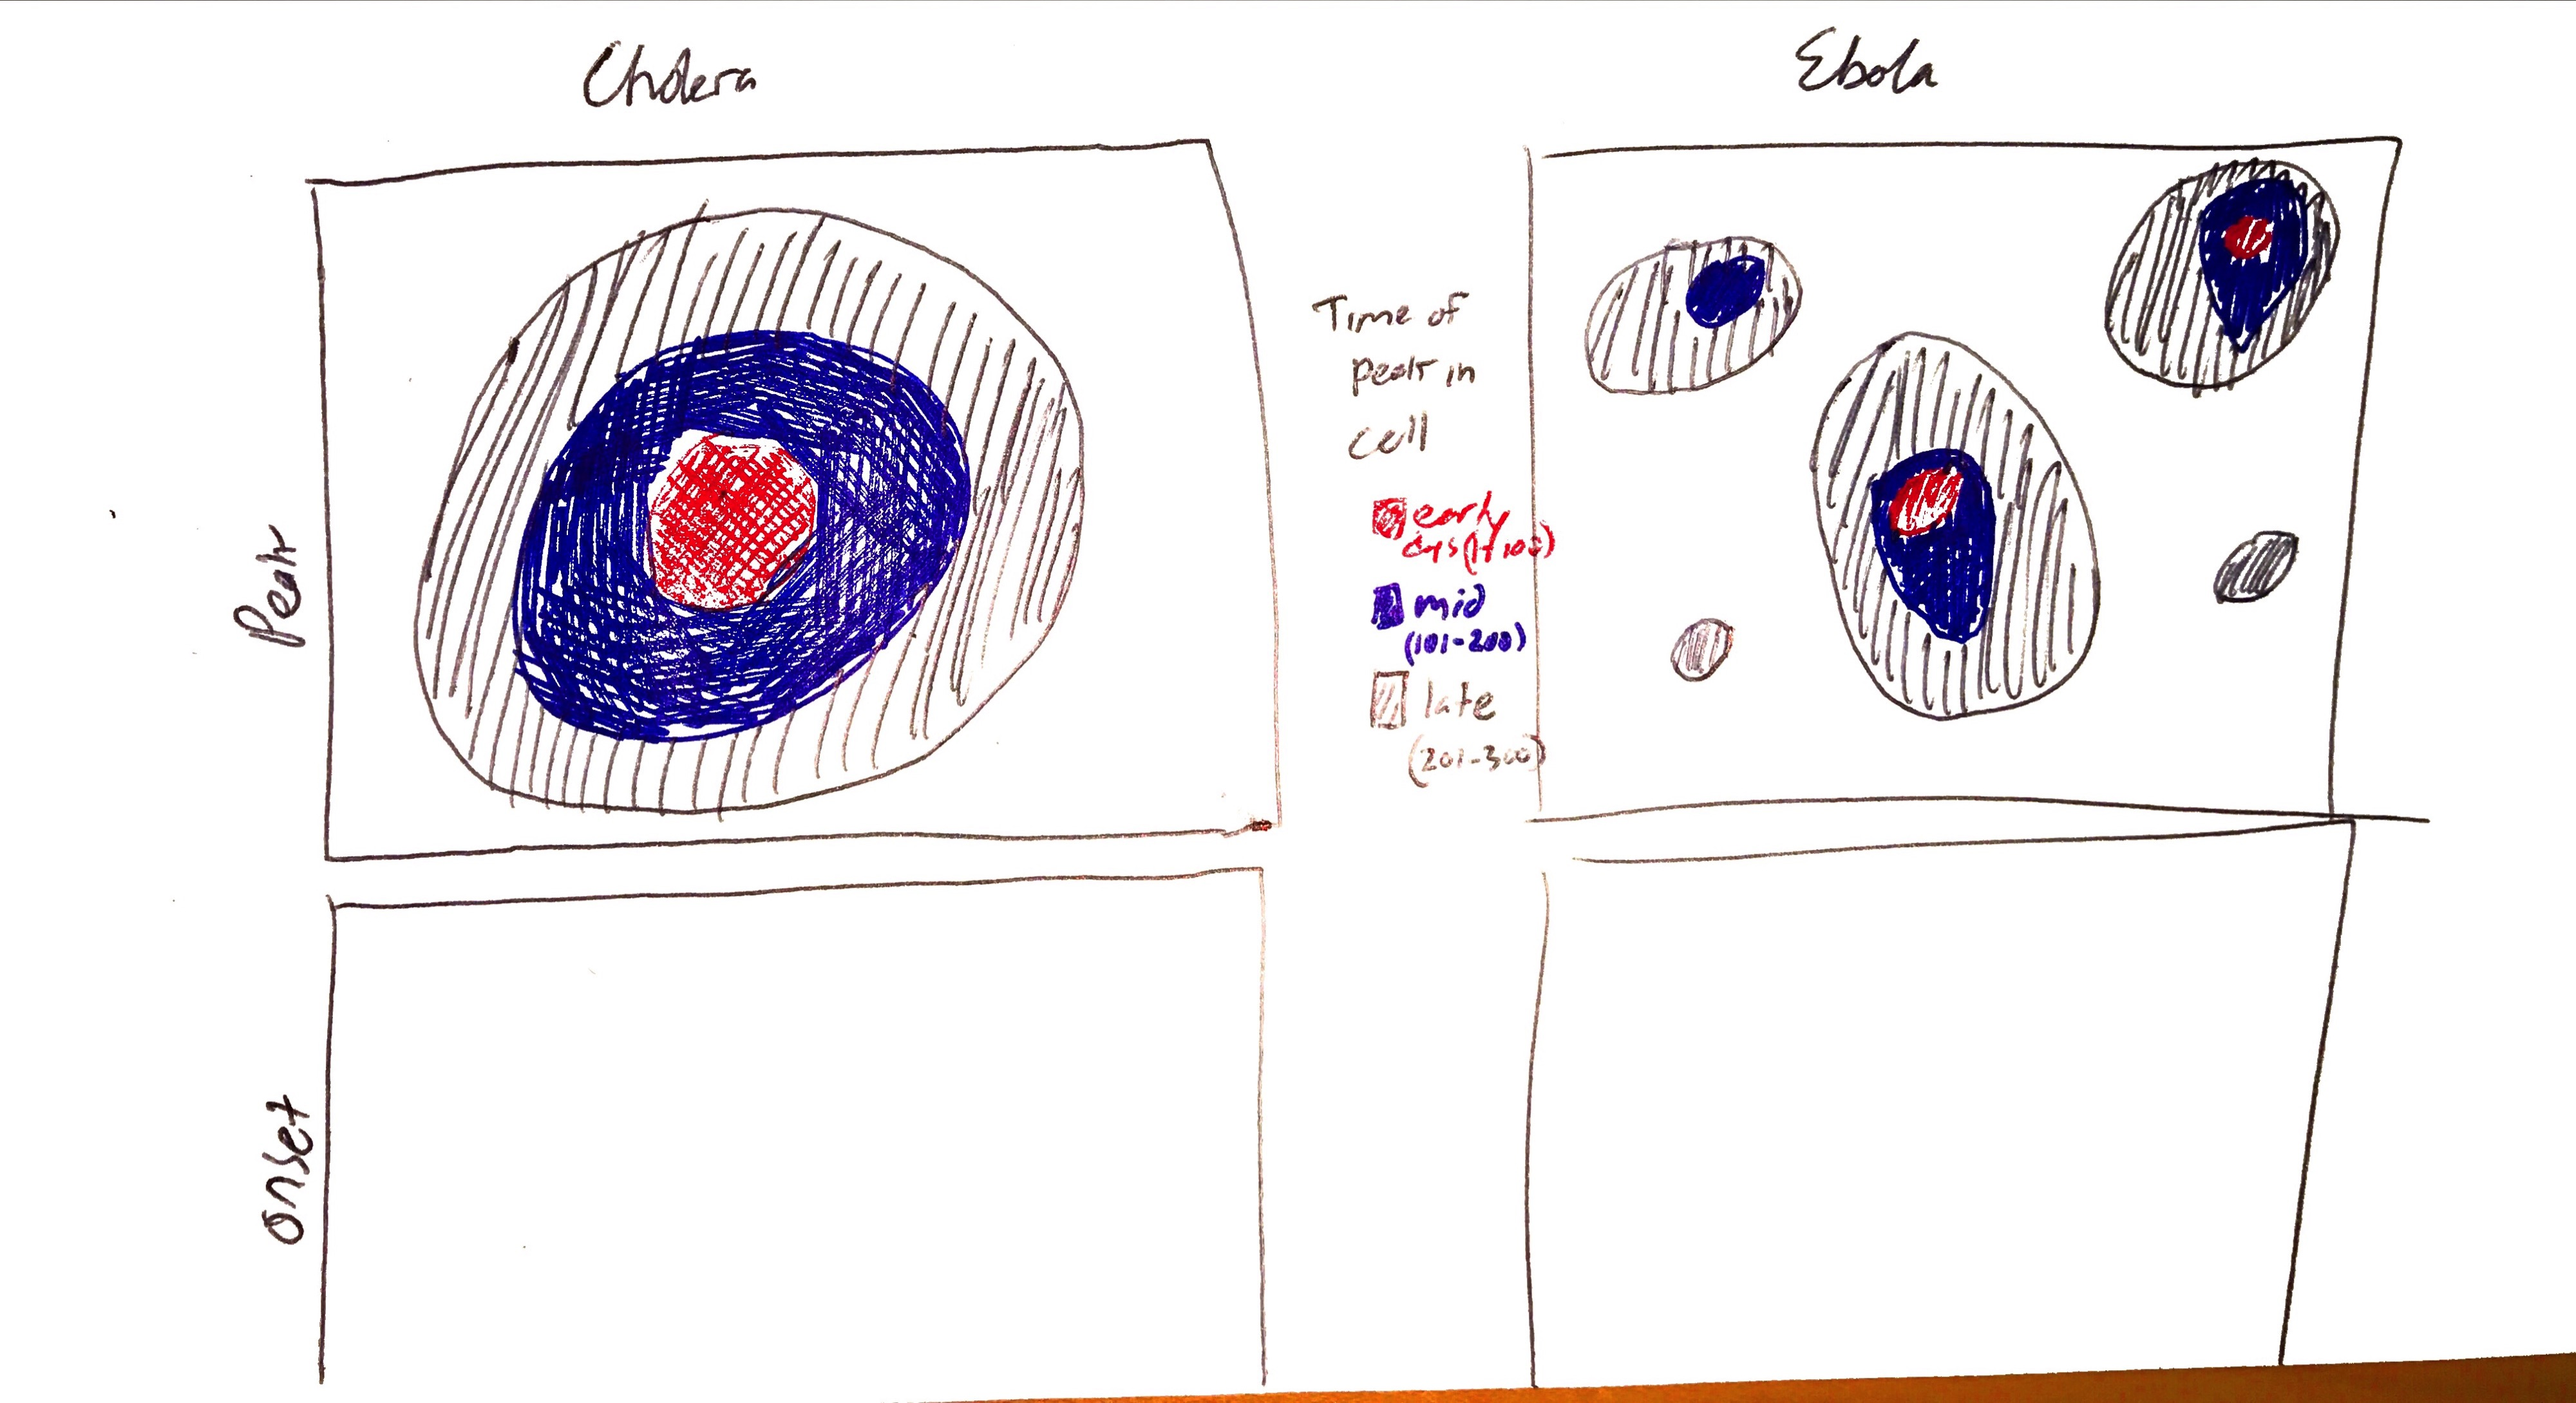 Cholera
Ebola
Peak
Time of
peak in
cell
early
dys (1-100)
mid
(101-200)
late
(201-300)
onset